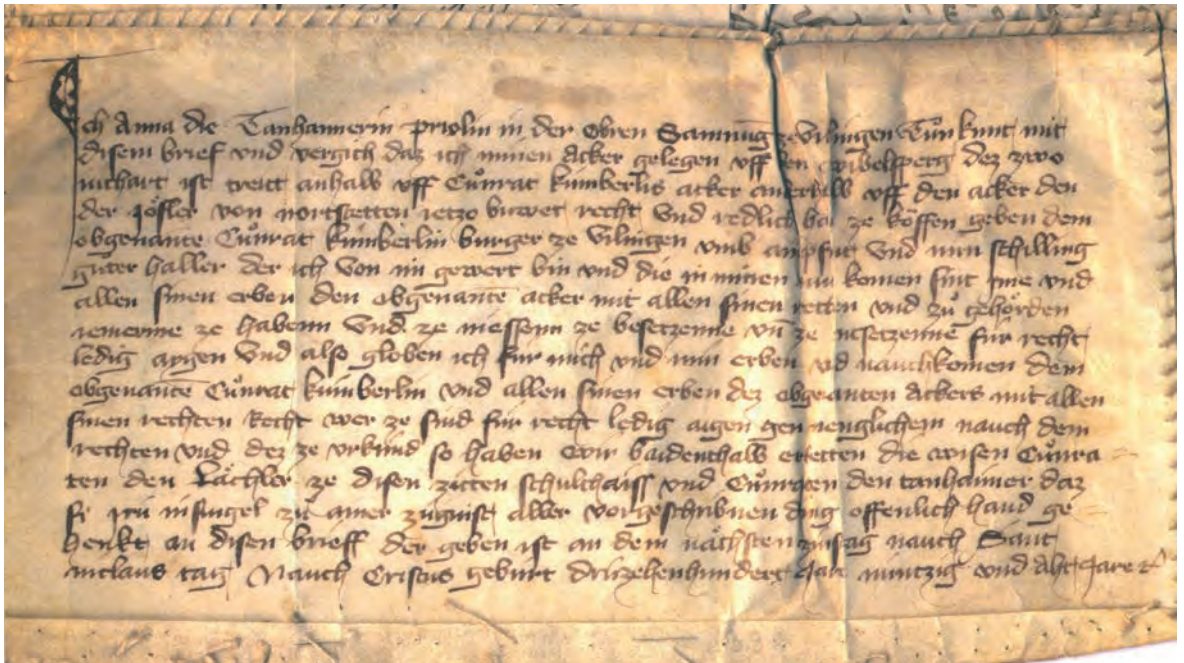 Ich Anna die Tanhaimerin priolin in der obren Samnũg ze Vilingen Tůn kunt mit
disem brief vnd vergich daz ich minen Acker gelegen vff den dez zwo
iuchart ist trett anhalb vff Cůnrat kúmberlis acker anderhalb vff den acker den
der von nortstetten ietzo buwet recht vnd redlich han ze köffen geben dem
obgenante Cůnrat kúmberlin burger ze Vilingen vmb ain pfut vnd nún schilling
gůter haller der ich von im gewert bin vnd die in minen komen sint ime vnd
allen sinen erben den obgenante acker mit allen sinen retten vnd zů gehörden
iemerme ze habenn vnd ze niessenn ze besetzenne vñ ze nesetzenne fúr recht
ledig aygen vnd also globen ich fúr mich vnd min erben vd nauchkomen dem
obgenante Cůnrat kúmberlin vnd allen sinen erben dez obgeanten Ackers mit allen
sinen rechten Recht wer ze sind fúr recht ledig aigen gen menglichem nauch dem
rechten vnd dez ze vrkúnd so haben wir baidenthalb erbetten die wisen Cůnra
ten den Lächler ze disen ziten schulthaiss vnd Cůnraten den tanhaimer daz
si irú insigel zů ainer zúgnist aller vorgeschribnen ding offenlich hand ge
henkt an disen brieff der geben ist an dem nächsten zinstag nauch Sant
niclaus tag Nauch Cristus gebúrt drúzehenhundert Jare núntzig vnd aht Jare